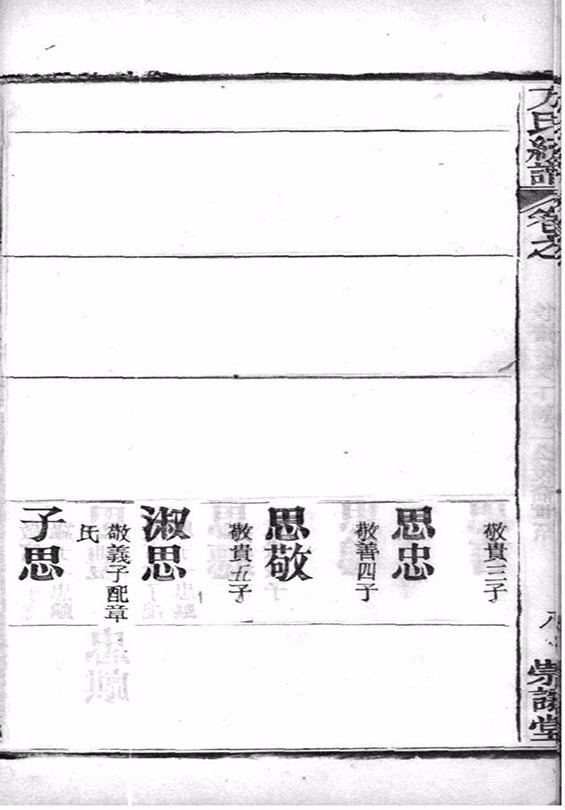 方氏統譜
卷之
八
堂
敬貴三子
思忠
敬善四子
思敬
敬貴五子
淑思
敬義子配章
氏
子思